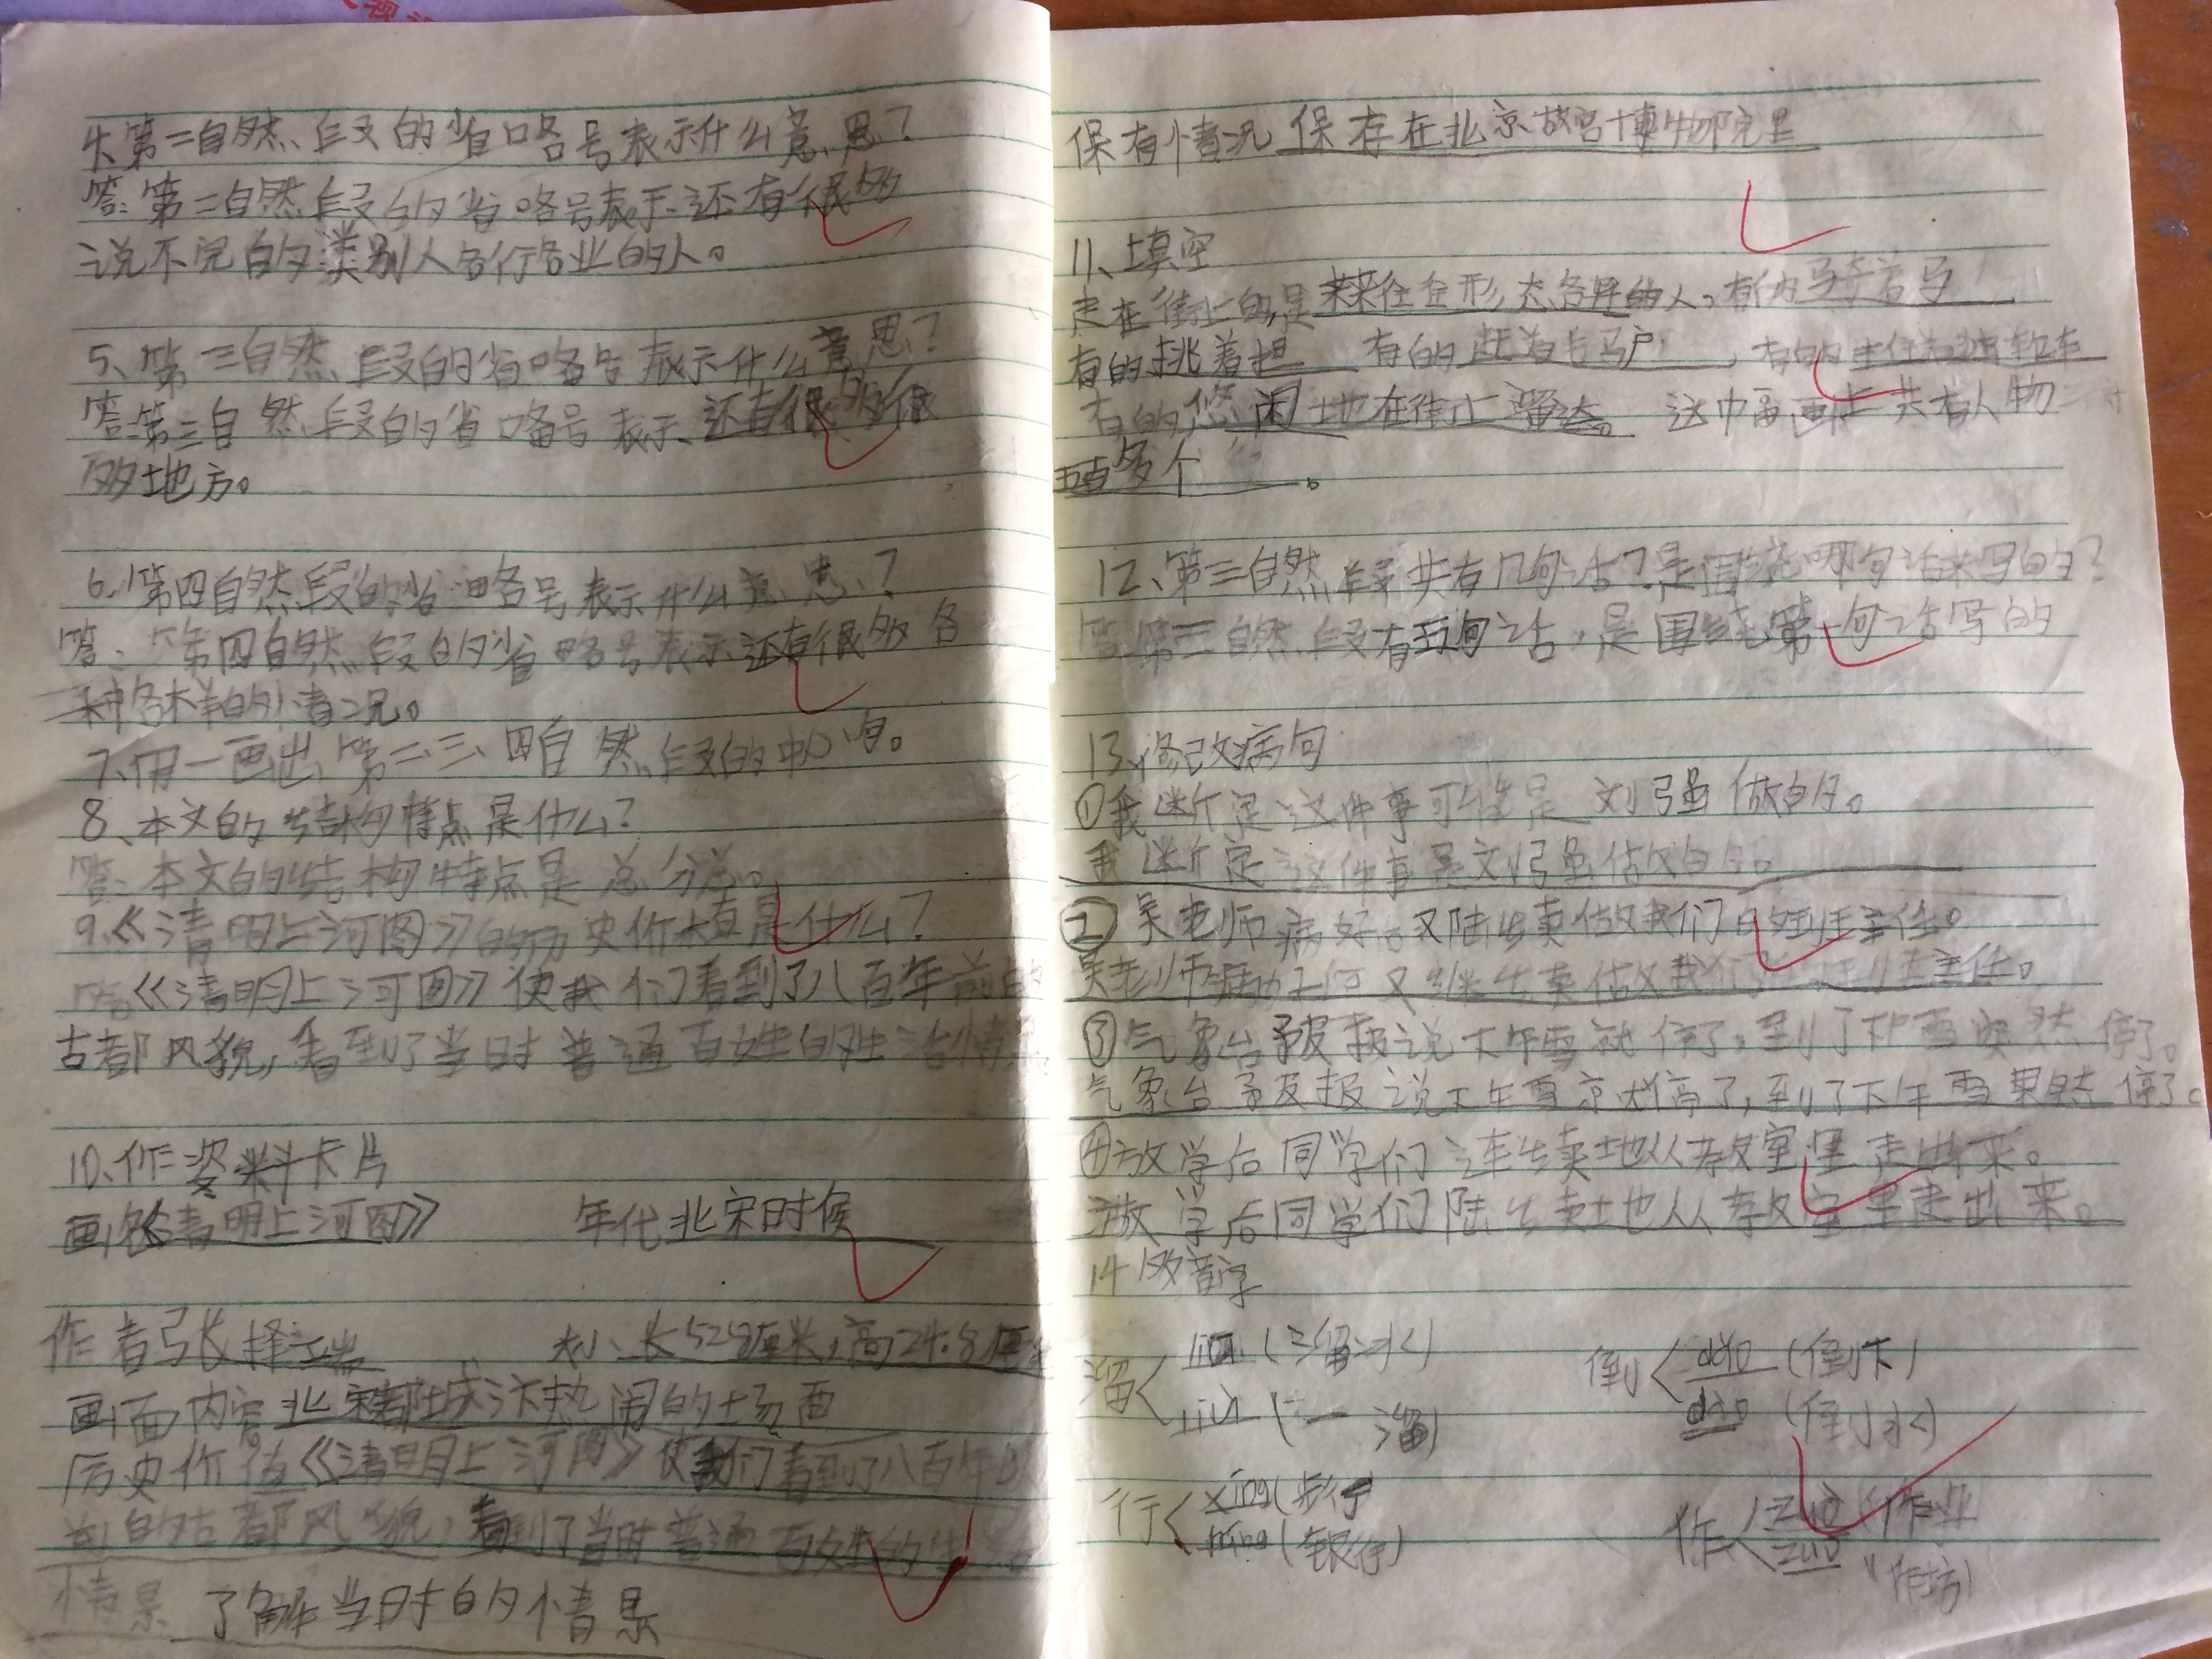 4、第二自然段的省略号表示什么意思?
答:第二自然段的省略号表示还有很多
说不完的类别人各行各业的人。
5、第三自然段的省略号表示什么意思?
答:第三自然段的省略号表示还有很多很
多地方。
6、第四自然段的省略号表示什么意思?
答:第四自然段的省略号表示还有很多各
种各样的情况。
7、用一画出第二、三、四自然段的中心句。
8、本文的结构特点是什么?
答:本文的结构特点是总分总。
9.《清明上河图》的历史价值是什么?
答《清明上河图》使我们看到了八百年前的
古都风貌,看到了当时普通百姓的生活情景
10、作资料卡片
画名《清明上河图》 年代北宋时候
作者张择端 大小长528厘米,高24.8厘米
画面内容北宋都城汴热闹的场面
历史价值《清明上河图》使我们看到了八百年以
前的古都风貌,看到了当时普通百姓的生活
情景 了解当时的情景
保存情况 保存在北京故宫博物院里
11、填空
走在街上的,是来来往往形态各异的人,有的骑着马
有的挑着担 有的赶着毛驴,有的推着独轮车
有的悠闲地在街上溜达。 这幅画上共有人物
五百多个。
12、第三自然段共有几句话?是围绕哪句话来写的?
答:第三自然段有五句话,是围绕第一句话写的
13、修改病句
①我断定这件事可能是刘强做的。
我断定这件事是刘强做的。
②吴老师病好后又陆续做我们的班主任。
吴老师病好后又继续做我们的班主任。
③气象台预报说下午雪就停了,到了下午雪突然停了。
气象台预报说下午雪就停了,到了下午雪果然停了。
④放学后同学们连续地从教室里走出来。
放学后同学们陆续地从教室里走出来。
14多音字
溜 liū (溜冰)
liù (一溜)
倒 dǎo (倒下)
dào (倒水)
行 xing (步行
hing (银行)
作 zuò (作业
zuō (作坊)